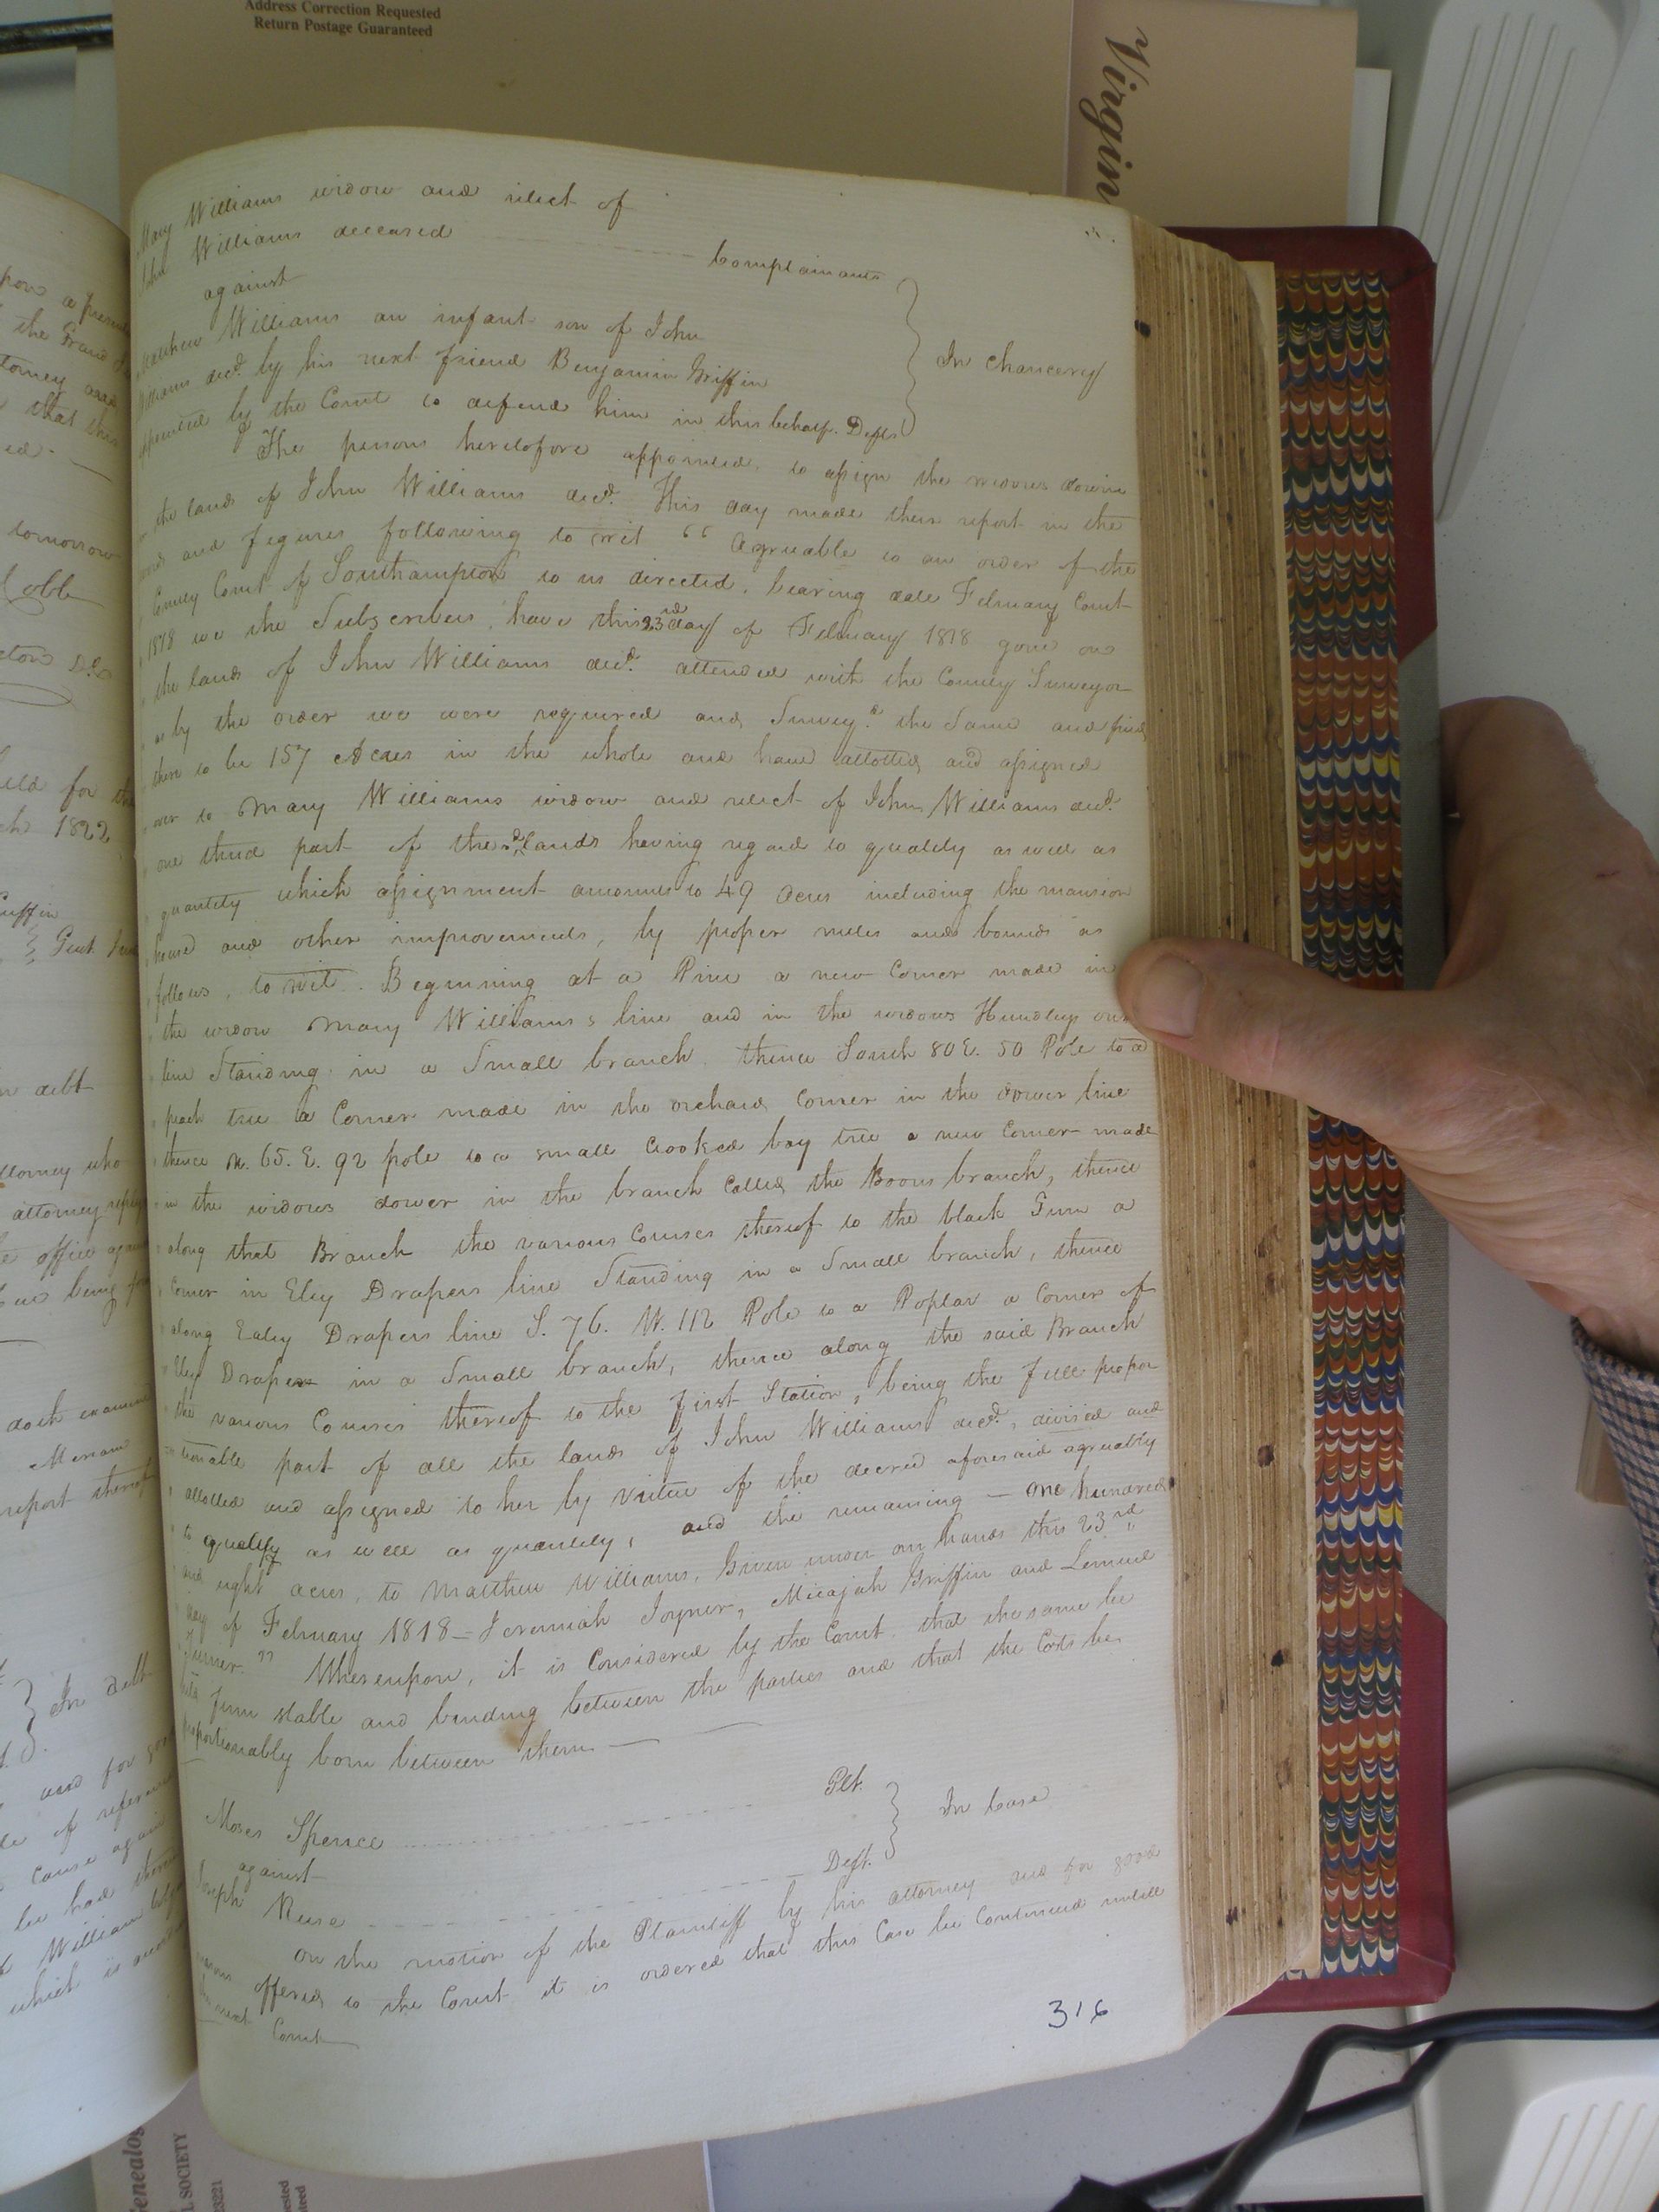 Address Correction Requested
Return Postage Guaranteed
Virgin
Mary Williams widow and relict of
John Williams deceased Complainants
against
In Chancery
Matthew Williams an infant son of John
Williams decd. by his next friend Benjamin Griffin
appointed by the Court to defend him in this behalf. Defts
The persons heretofore appointed, to assign the widows dower
the lands of John Williams decd. This day made their report in the
words and figures following to wit " Agreeable to an order of the
County Court of Southampton to us directed, bearing date February Court
1818 we the Subscribers, have this 23nd day of February 1818 gone on
the lands of John Williams decd. attended with the County Surveyor
as by the order we were required and Survey.d the Same and find
there to be 157 Acres in the whole and have allotted and assigned
over to Mary Williams widow and relict of John Williams decd.
one third part of the sd lands having regard to quality as well as
quantity which assignment amounts to 49 Acres including the mansion
house and other improvements, by proper metes and bounds as
follows, to wit. Beginning at a Pine a new Corner made in
the widow Mary Williams's line and in the widows Hundley
line Standing in a Small branch, thence South 80 E. 50 Pole to a
peach tree a Corner made in the orchard Corner in the dower line
thence N. 65. E. 92 pole to a small Crooked bay tree a new Corner made
in the widows dower in the branch Called the Boons branch, thence
along that Branch the various Courses thereof to the black Gum a
Corner in Eley Drapers line Standing in a Small branch, thence
along Ealey Drapers line S. 76. W. 112 Pole to a Poplar a Corner of
Eley Draper in a Small branch, thence along the said Branch
the various Courses thereof to the first Station, being the full propor
tionable part of all the lands of John Williams decd, divised and
allotted and assigned to her by virtue of the decred aforesaid agreeably
to quality as well as quantity, and the remaining — one hundred
and eight acres, to Matthew Williams, Given under our hands this 23rd
day of February 1818 — Jeremiah Joyner, Micajah Griffin and Lemuel
Turner." Whereupon, it is Considered by the Court that the same be
held firm stable and binding between the parties and that the Costs be
proportionably born between them —
Moses Spence Plt.
against
In Case
Joseph Deft.
On the motion of the Plaintiff by his attorney and for good
reasons offered to the Court it is ordered that this Case be Continued untill
the next Court
316
the Grand
that this
tomorrow
1822
in debt
attorney who
attorney
doth examine
report thereof
In debt
and for good
cause again
be had
William
which is
SOCIETY
23221